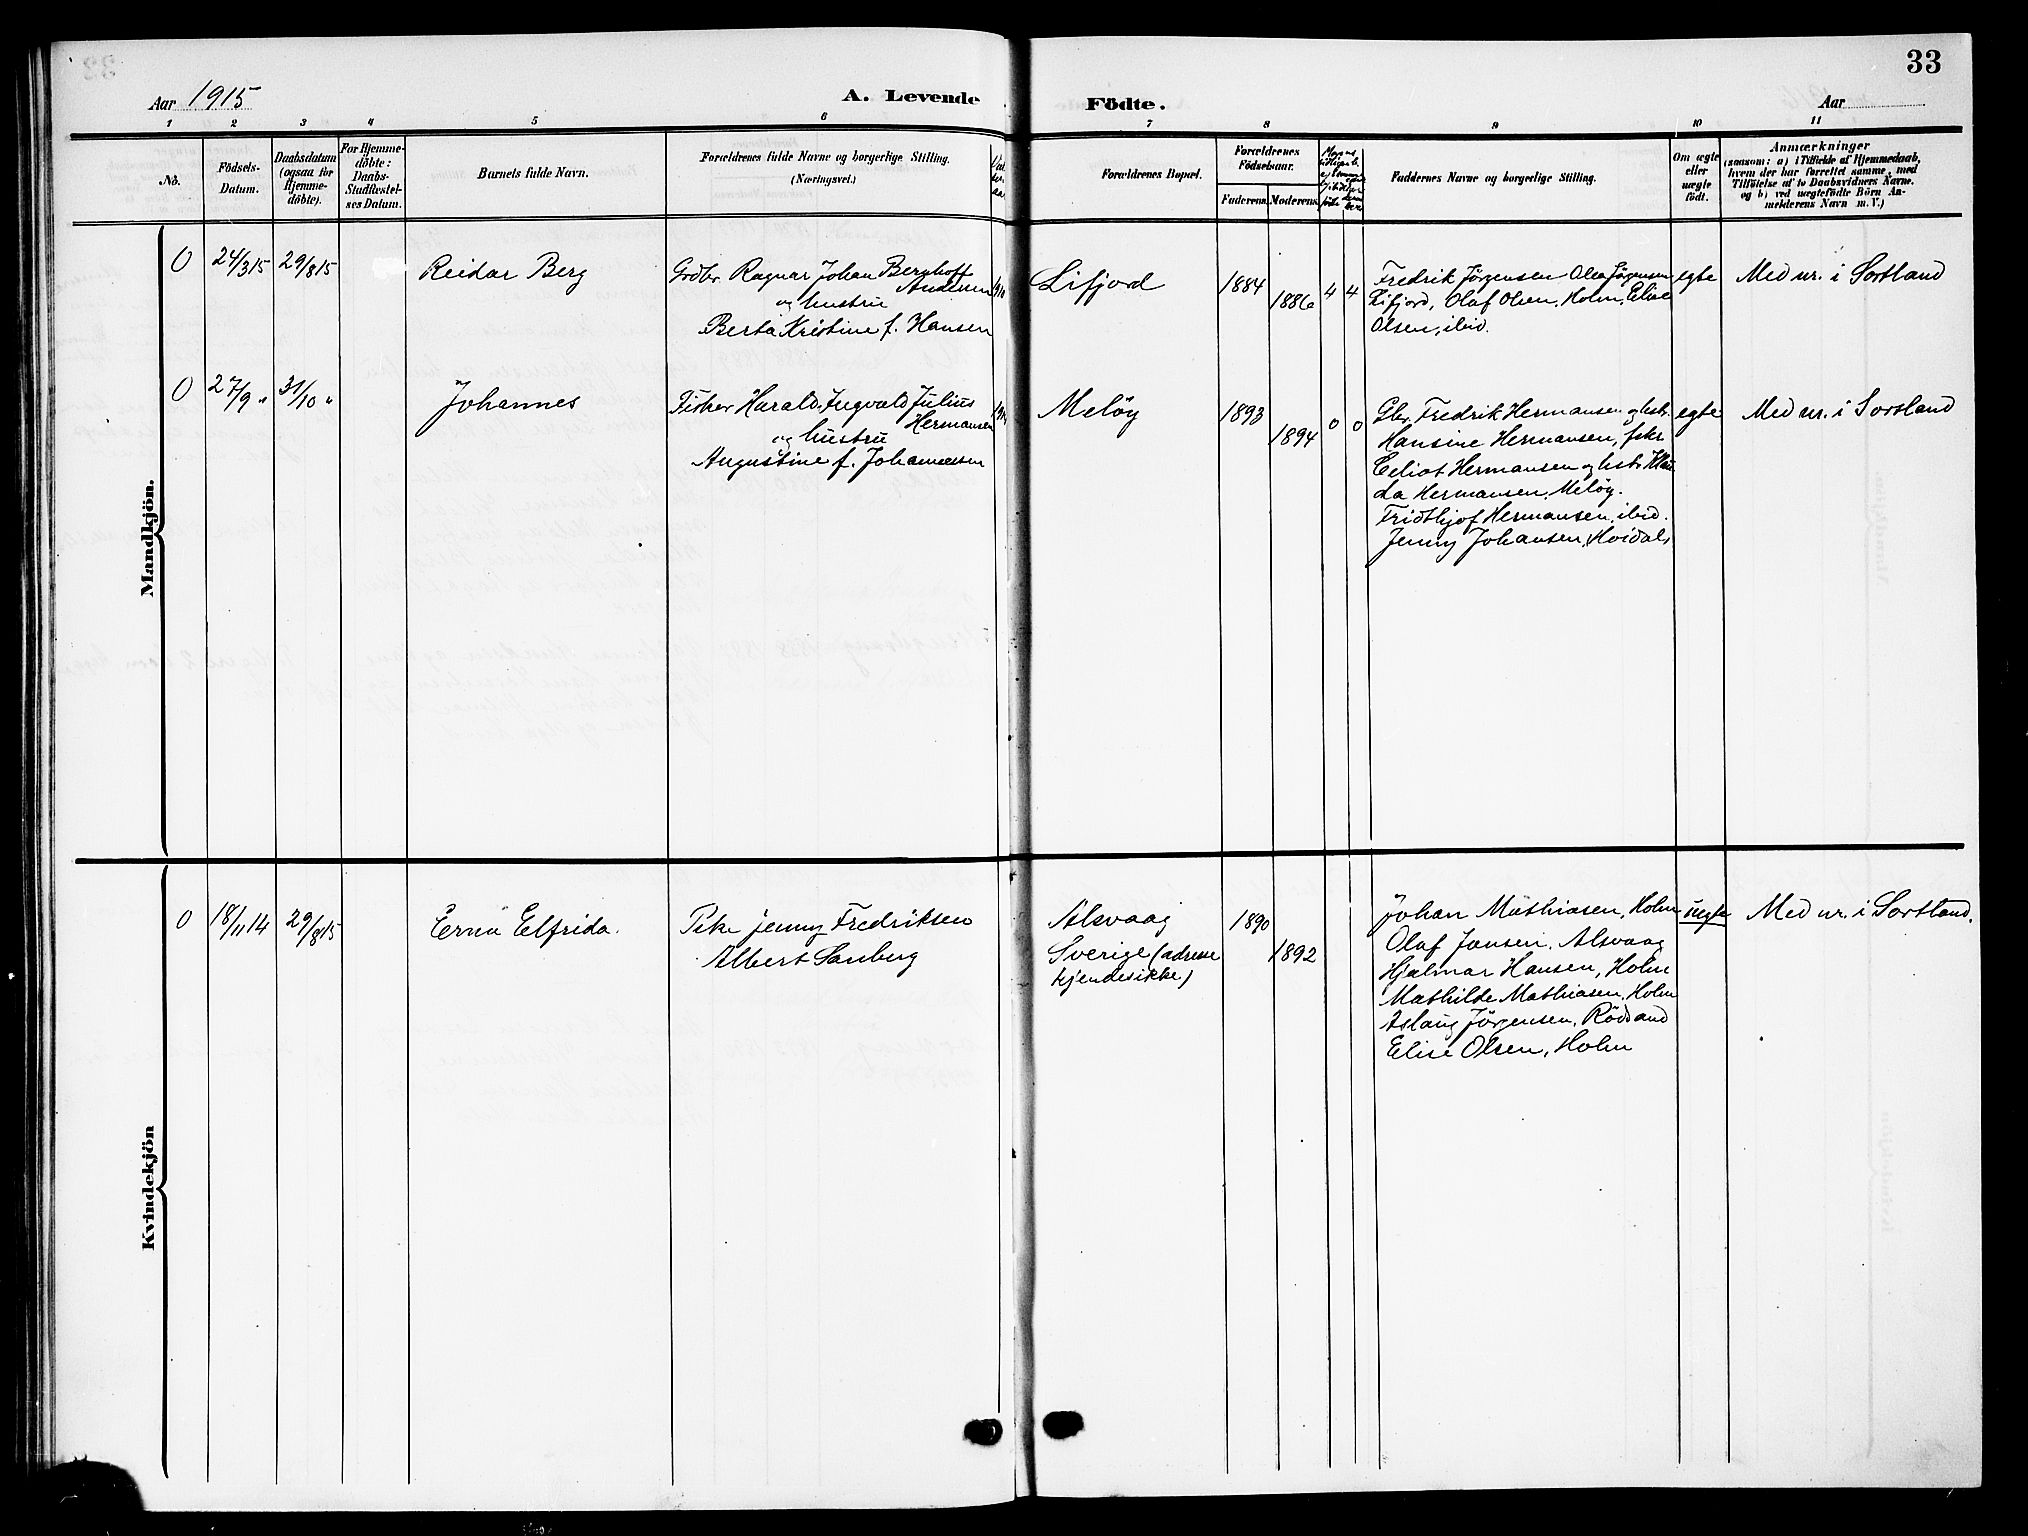 33
Aar 1915
A. Levende Födte.
Aar
1 2 3 4 5 6 7 8 9 10 11
No.
Födsels-
Datum.
Daabsdatum
(ogsaa for
Hjemme-
döbte).
For Hjemme-
döbte:
Daabs-
Stadfæstel-
ses Datum.
Barnets fulde Navn.
Forældrenes fulde Navne og borgerlige Stilling.
(Næringsvei.)
Forældrenes Bopæl.
Forældrenes
Födselsaar.
Faderens. Moderens.
Faddernes Navne og borgerlige Stilling.
Om ægte
eller
uægte
födt.
Anmærkninger
(saasom: a) i Tilfælde af Hjemmedaab,
hvem der har forrettet samme, med
Tilföielse af to Daabsvidners Navne.
og b) ved uægtefödte Börn An-
melderens Navn m. V.)
Mandkjön.
0 24/3 15 29/8 15 Reidar Berg
Grdbr. Ragnar Johan Berghoff
Andersen
og hustru
Berta Kristine f. Hansen
Lifjord 1884 1886 4 4
Fredrik Jørgensen Olea Jørgensen
Lifjord, Olaf Olsen, Holm, Elise
Olsen, ibid.
egte Med nr. i Sortland
0 27/9 " 31/10 " Johannes
Fisker Harald Ingvald Julius
Hermansen
og hustru
Augustine f. Johannessen
Meløy 1893 1894 0 0
Gbr. Fredrik Hermansen og hst.
Hansine Hermansen, fskr
Eeliot Hermansen og hst.
da Hermansen, Meløy.
Fridthjof Hermansen, ibid.
Jenny Johansen, Hoidal,
egte Med nr. i Sortland
Kvindekjön
0 18/11 14 29/8 15 Erna Elfrida.
Pike Jenny Fredriksen
Albert Sanberg
Alsvaag
Sverige (adresse
kjendes ikke)
1890 1892
Johan Mathiasen, Holm
Olaf Jansen, Alsvaag
Hjalmar Hansen, Holm
Mathilde Mathiasen, Holm
Aslaug Jørgensen, Rödsand
Elise Olsen, Holm
uegte Med nr. i Sortland.